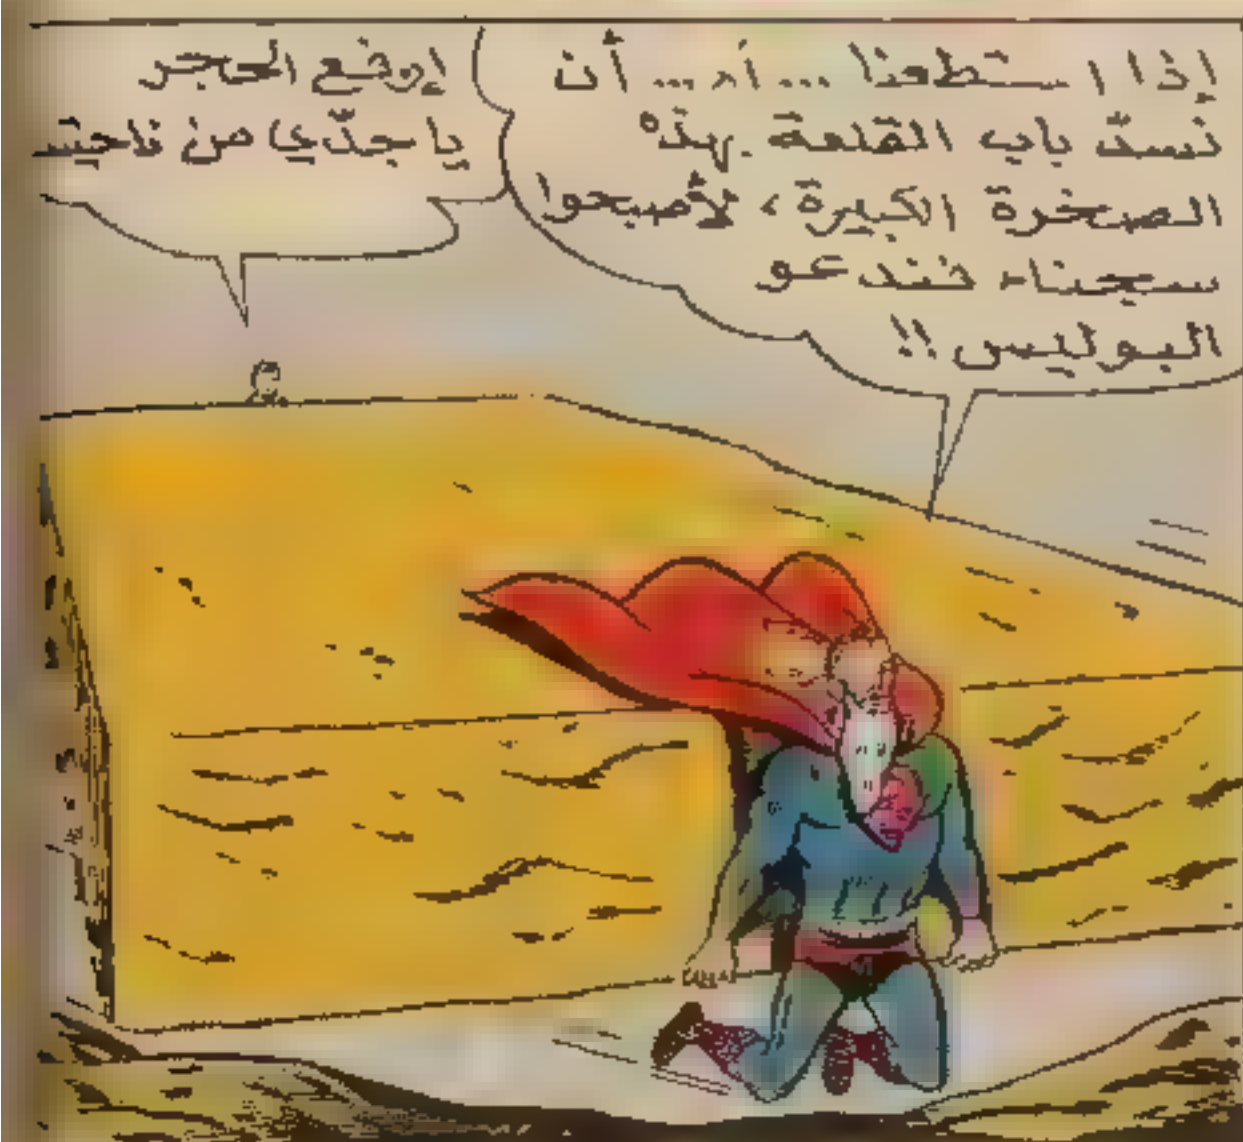 إذا استطعنا ... أم ... أن
نسدّ باب القلعة بهذه
الصخرة الكبيرة، لأصبحوا
سجناء فندعو
البوليس !!
إرفع الحجر
يا جدّي من